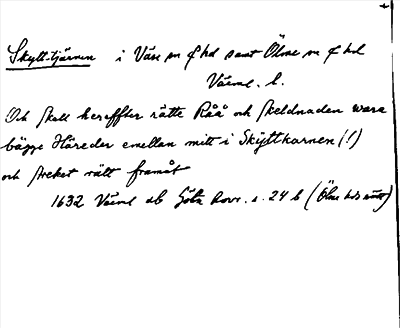 Skylt-tjärnen i Väse sn o hd samt Ölme sn o hd
Värml. l.
Och skall hereffter rätte Råå och skeldnaden wara
bägge Häreder emellan mitt i Skÿttkarnen (!)
och strecket rätt framåt
1632 Värml db Göta hovr. s. 24 b (Ölme hds rätt)